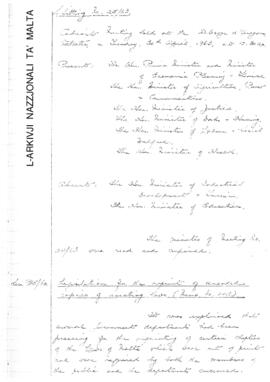 L-ARKIVJI NAZZJONALI TA' MALTA
Meeting No.
Cabinet Meeting held at the
Tuesday, 30th April, 1963, at
Present: The Hon. Prime Minister and Minister
of Economic Planning & Finance
The Hon. Minister of Agriculture, Power
& Communications.
The Hon. Minister of Justice.
The Hon. Minister of Works & Housing.
The Hon. Minister of Labour & Social
Welfare.
The Hon. Minister of Health.
Absent: The Hon. Minister of Industrial
Development & Tourism.
The Hon. Minister of Education.
The minutes of Meeting No.
were read and confirmed.
for the reprint of
copies of existing laws
It was explained that
several Government departments had been
pressing for the reprinting of certain chapters
of the Laws of Malta which were out of print
and were required by both the members of
the public and the departments concerned.